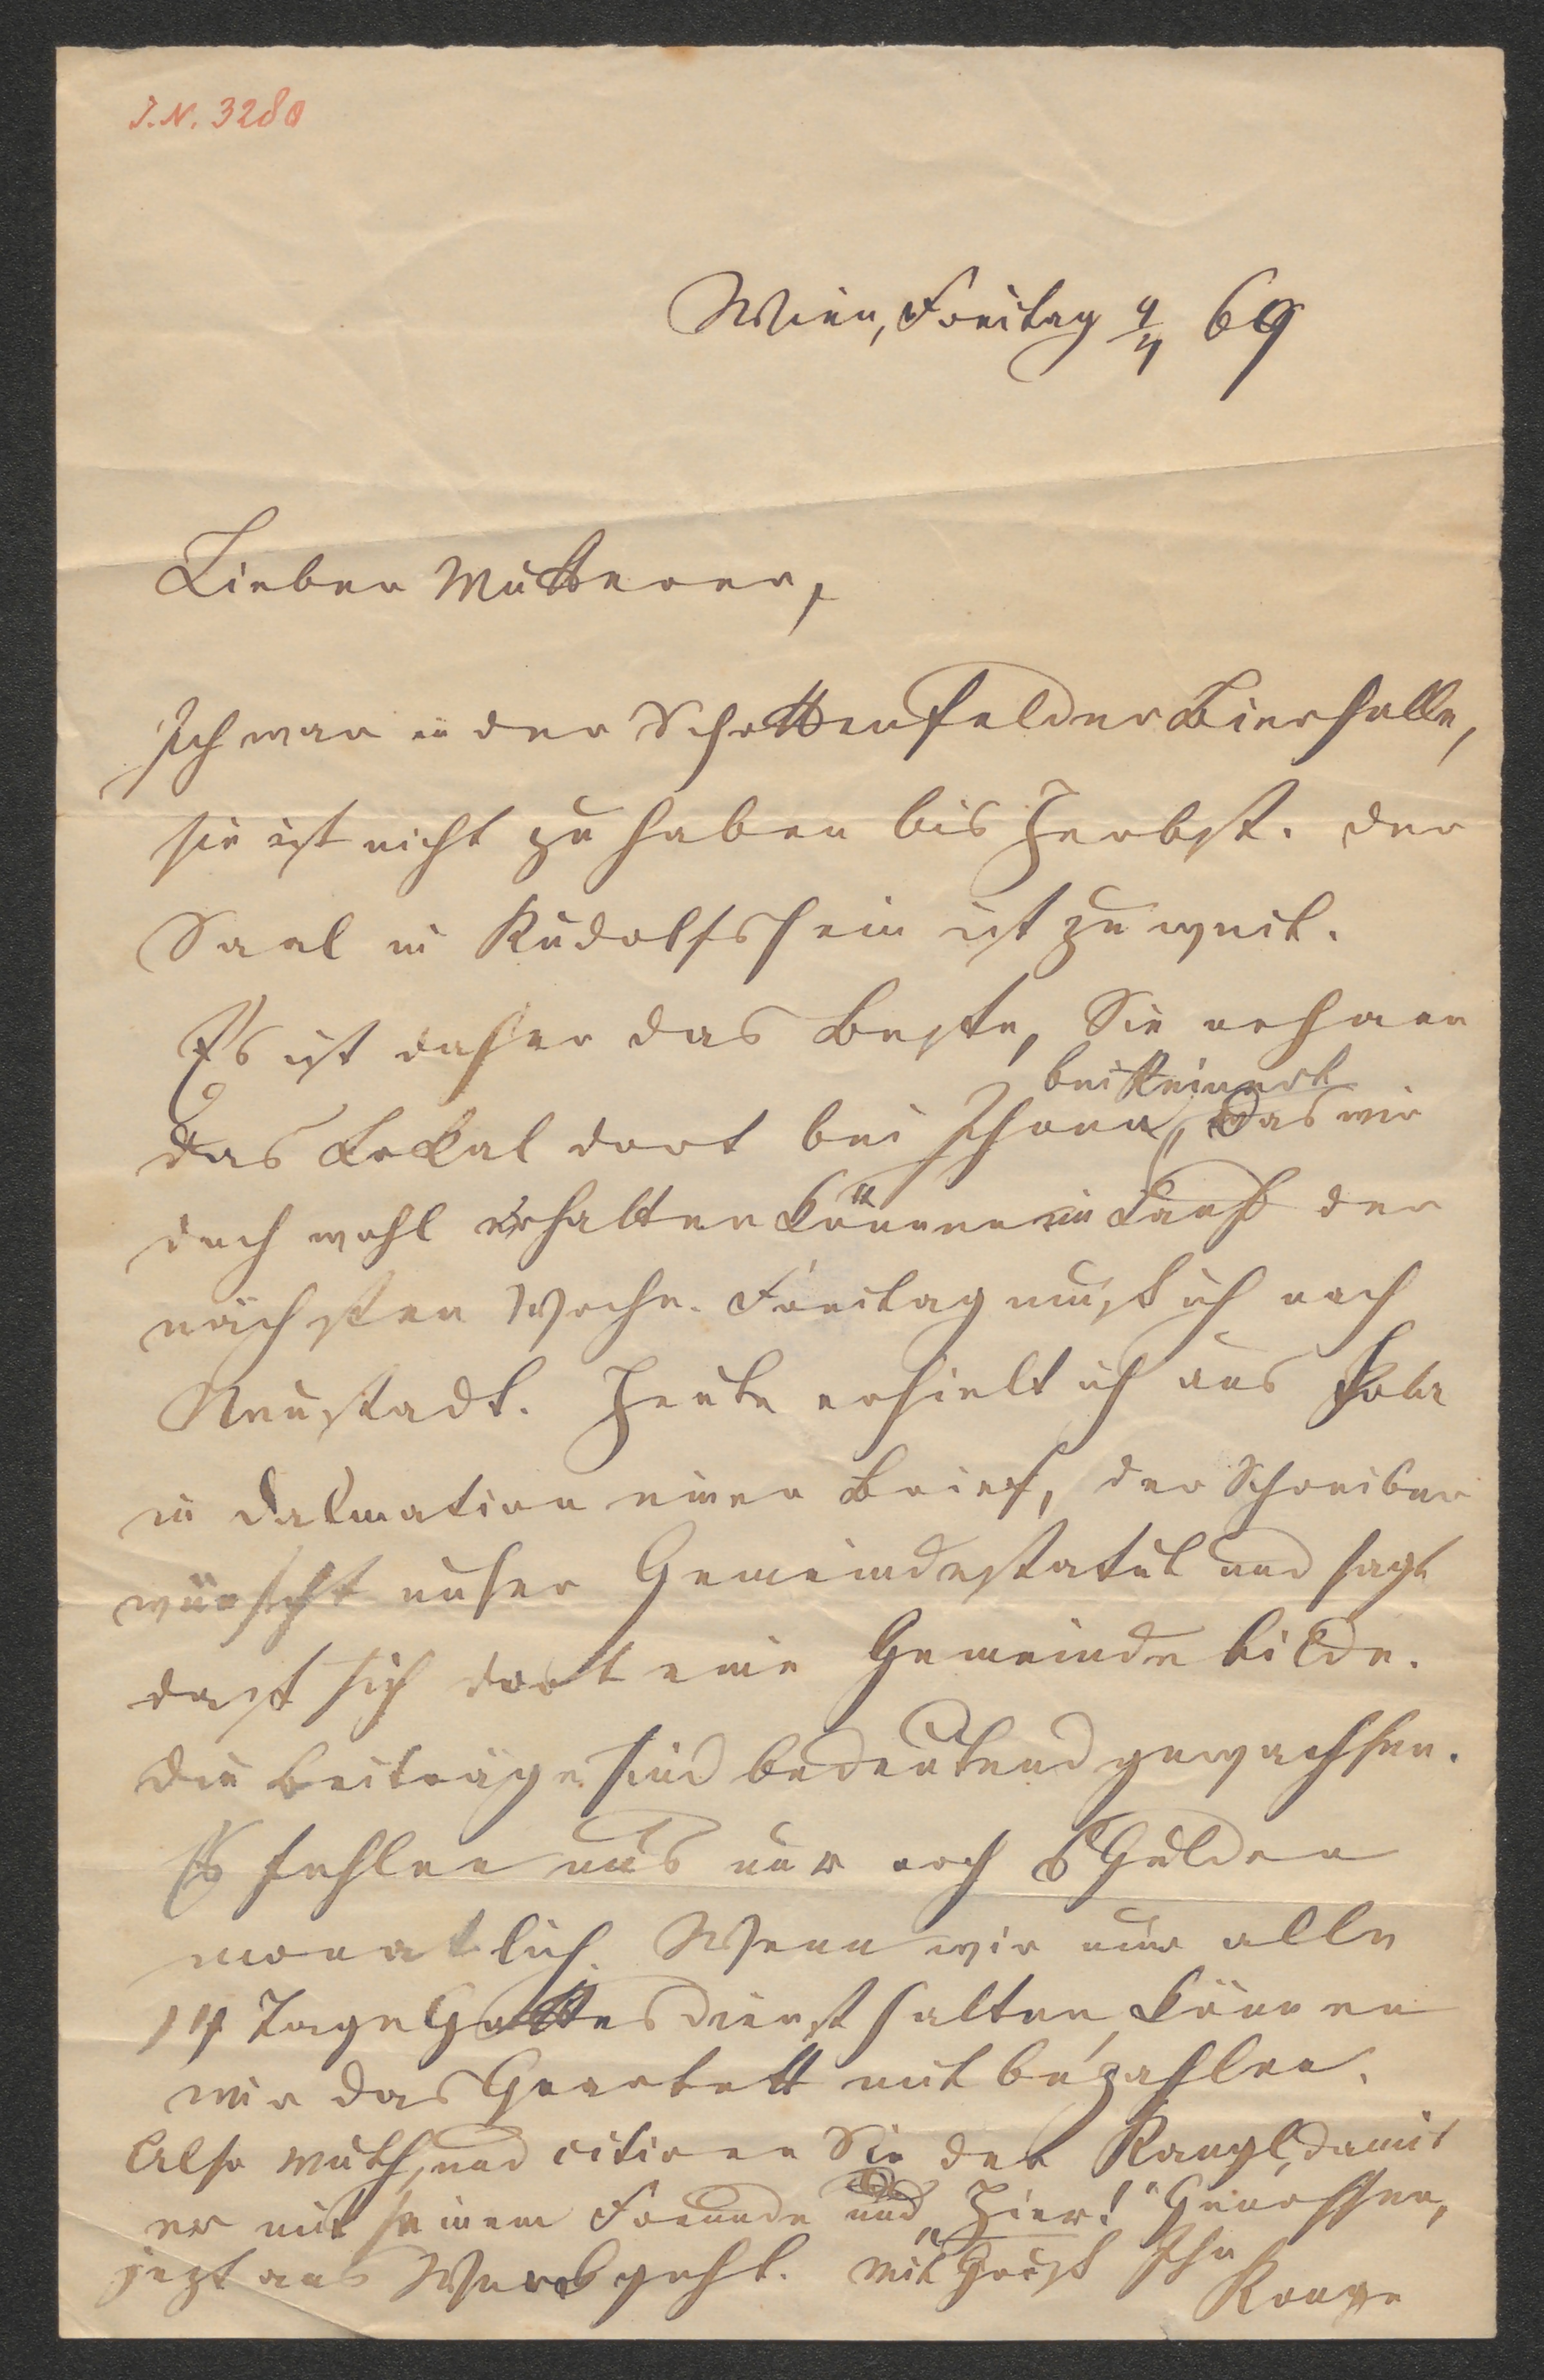 J.N. 3280
Wien, Freitag 9/4 69
Lieber Mutterer,
Ich war in der Schottenfelder Bierhalle,
sie ist nicht zu haben bis Herbst. Der
Saal in Rudolfsheim ist zu weit.
Es ist daher das Beste, Sie nehmen
bei Reinert
das Lokal dort bei Ihnen, das wir
doch wohl erhalten können im Laufe der
nächsten Woche. Freitag muß ich nach
Neustadt. Heute erhielt ich aus
in Dalmatien einen Brief, der Schreiber
wünscht unser Gemeindestatut und sagt
daß sich dort eine Gemeinde bilde.
Die Beiträge sind bedeutend gewachsen.
Es fehlen uns nur noch 6 Gulden
monatlich. Wenn wir nur alle
14 Tage Gottesdienst halten, können
wir das Quartett mit bezahlen.
Also Muth, und citiren Sie den Rangl, damit
er mit seinem Freunde und „Hier!" Genossen,
jezt ans Werk geht. Mit Gruß Ihr
Ronge